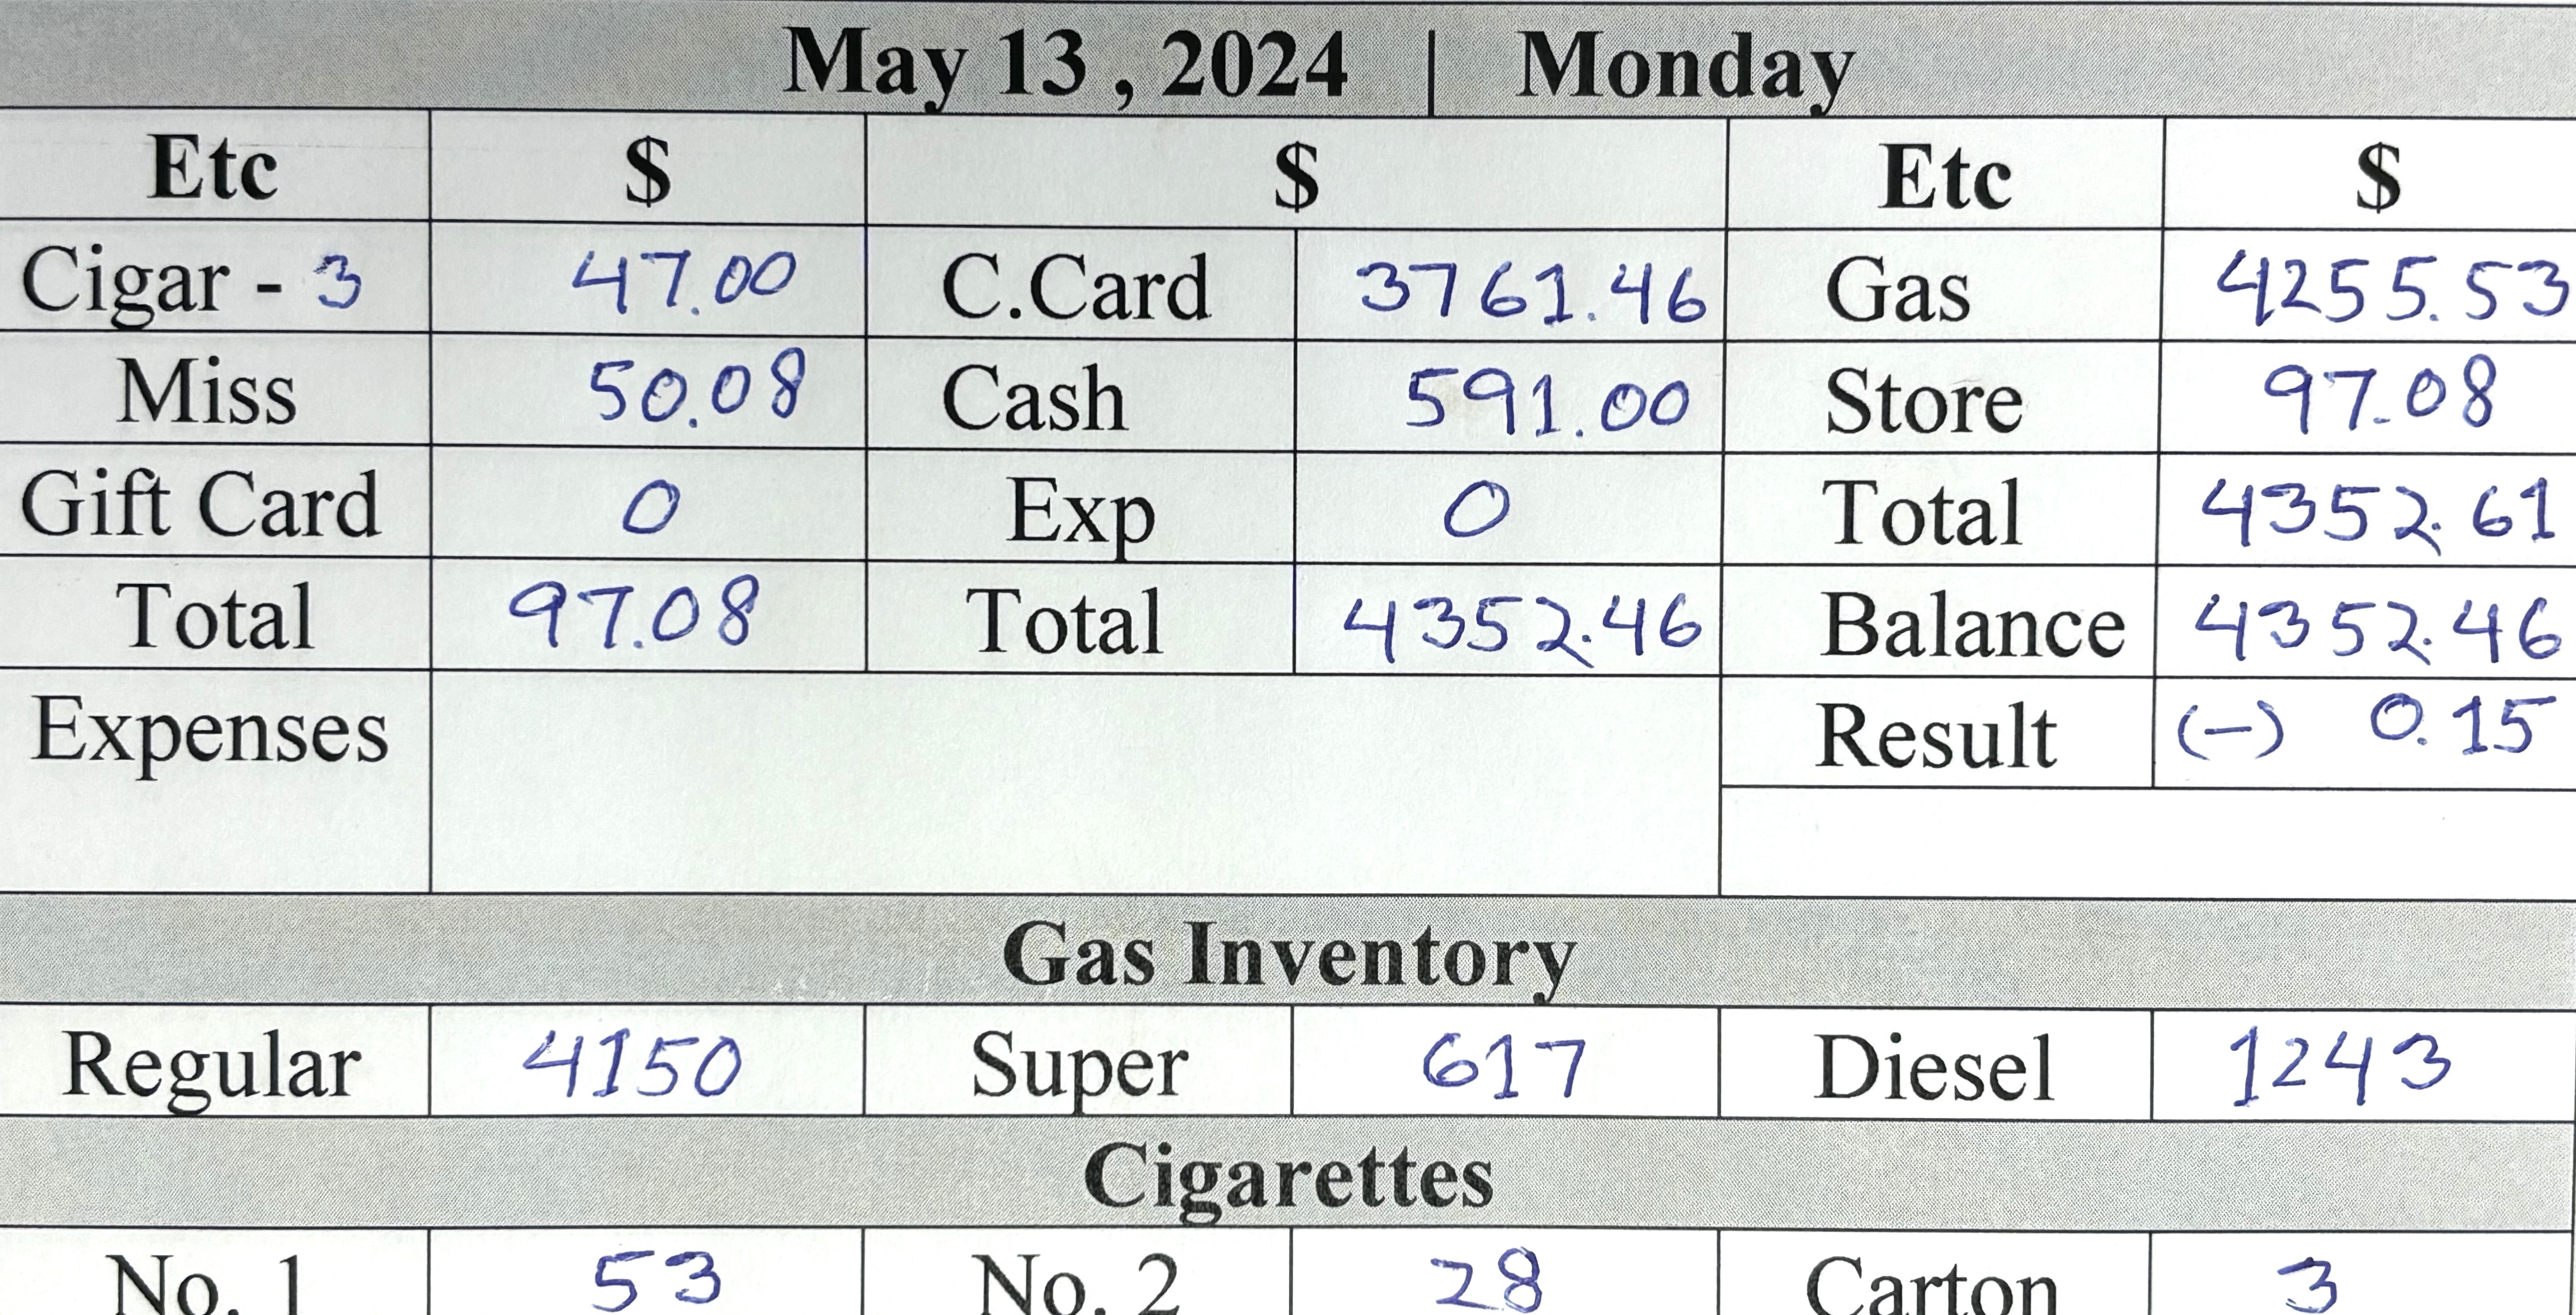 May 13 , 2024 | Monday
Etc $ $ Etc $
Cigar - 3 47.00 C.Card 3761.46 Gas 4255.53
Miss 50.08 Cash 591.00 Store 97.08
Gift Card 0 Exp 0 Total 4352.61
Total 97.08 Total 4352.46 Balance 4352.46
Expenses Result (-) 0.15
Gas Inventory
Regular 4150 Super 617 Diesel 1243
Cigarettes
No. 1 53 No. 2 28 Carton 3